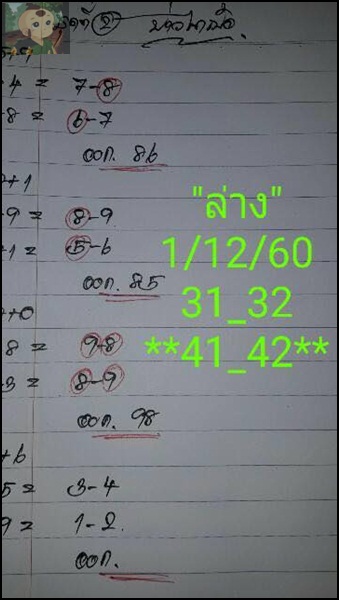 สูตรที่ 2
5+9
-4 = 7-8
-8 = 6-7
ออก. 86
+1
-9 = 8-9
+1 = 5-6
ออก. 85
+0
8 = 9-8
-3 = 8-9
ออก. 98
+6
5 = 3-4
9 = 1-2.
ออก.
"ล่าง"
1/12/60
31_32
**41_42**